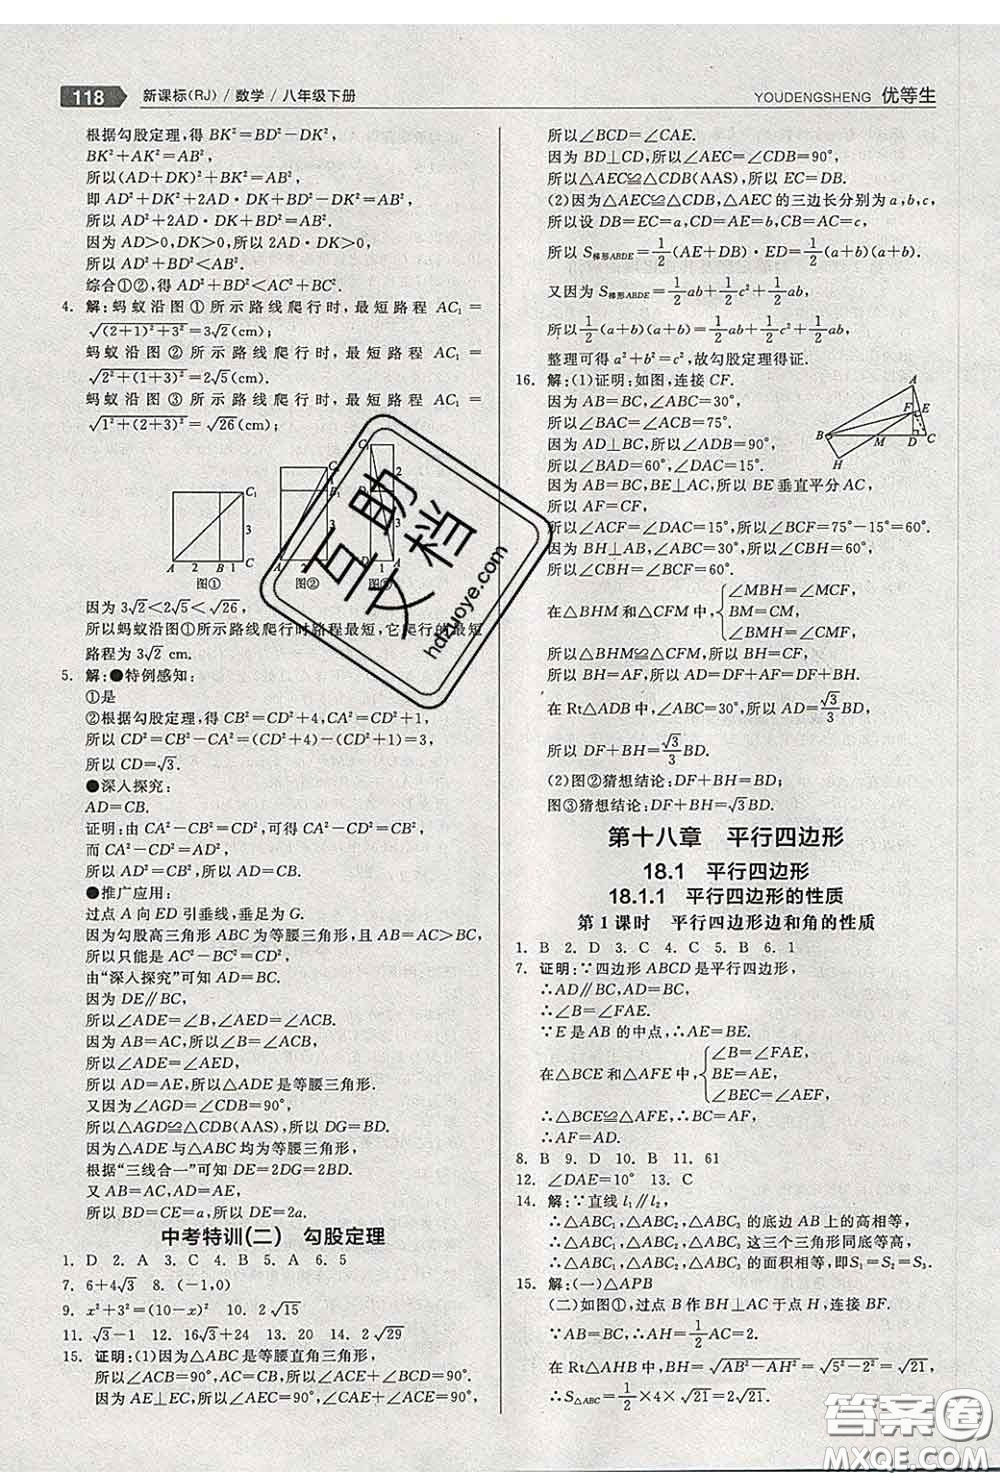 118 新课标(RJ) / 数学 / 八年级下册
YOUDENGSHENG 优等生
根据勾股定理,得 BK²=BD²-DK²,
BK²+AK²=AB²,
所以(AD+DK)²+BD²-DK²=AB²,
即 AD²+DK²+2AD·DK+BD²-DK²=AB²,
所以 AD²+2AD·DK+BD²=AB²,
因为 AD>0,DK>0,所以 2AD·DK>0,
所以 AD²+BD²<AB².
综合①②,得 AD²+BD²<AC²+BC².
4. 解:蚂蚁沿图①所示路线爬行时,最短路程 AC₁=
√((2+1)²+3²)=3√2(cm);
蚂蚁沿图②所示路线爬行时,最短路程 AC₁=
√(2²+(1+3)²)=2√5(cm);
蚂蚁沿图③所示路线爬行时,最短路程 AC₁=
√(1²+(2+3)²)=√26(cm),
C₁
3
A 2 B 1 C
图①
图②
因为 3√2<2√5<√26,
所以蚂蚁沿图①所示路线爬行时路程最短,它爬行的最短
路程为 3√2 cm.
5. 解:●特例感知:
①是
②根据勾股定理,得 CB²=CD²+4,CA²=CD²+1,
所以 CD²=CB²-CA²=(CD²+4)-(CD²+1)=3,
所以 CD=√3.
●深入探究:
AD=CB.
证明:由 CA²-CB²=CD²,可得 CA²-CD²=CB²,
而 CA²-CD²=AD²,
所以 AD²=CB²,所以 AD=CB.
●推广应用:
过点 A 向 ED 引垂线,垂足为 G.
因为勾股高三角形 ABC 为等腰三角形,且 AB=AC>BC,
所以只能是 AC²-BC²=CD²,
由“深入探究”可知 AD=BC.
因为 DE∥BC,
所以∠ADE=∠B,∠AED=∠ACB.
因为 AB=AC,所以∠B=∠ACB,
所以∠ADE=∠AED,
所以 AD=AE,所以△ADE 是等腰三角形.
又因为∠AGD=∠CDB=90°,
所以△AGD≌△CDB(AAS),所以 DG=BD.
因为△ADE 与△ABC 均为等腰三角形,
根据“三线合一”可知 DE=2DG=2BD.
又 AB=AC,AD=AE,
所以 BD=CE=a,所以 DE=2a.
中考特训(二) 勾股定理
1. D 2. A 3. C 4. B 5. A 6. 5
7. 6+4√3 8. (-1,0)
9. x²+3²=(10-x)² 10. 2√15
11. √3-1 12. 16√3+24 13. 20 14. 2√29
15. 证明:(1)因为△ABC 是等腰直角三角形,
所以∠ACB=90°,AC=BC,所以∠ACE+∠BCD=90°.
因为 AE⊥EC,所以∠AEC=90°,所以∠ACE+∠CAE=90°,
所以∠BCD=∠CAE.
因为 BD⊥CD,所以∠AEC=∠CDB=90°,
所以△AEC≌△CDB(AAS),所以 EC=DB.
(2)因为△AEC≌△CDB,△AEC 的三边长分别为 a,b,c,
所以设 DB=EC=a,CD=AE=b,CB=AC=c,
所以 S梯形ABDE=1/2(AE+DB)·ED=1/2(a+b)(a+b).
又因为 S梯形ABDE=1/2ab+1/2c²+1/2ab,
所以1/2(a+b)(a+b)=1/2ab+1/2c²+1/2ab,
整理可得 a²+b²=c²,故勾股定理得证.
16. 解:(1)证明:如图,连接 CF.
因为 AB=BC,∠ABC=30°,
所以∠BAC=∠BCA=75°.
因为 AD⊥BC,所以∠ADB=90°,
所以∠BAD=60°,∠DAC=15°.
因为 AB=BC,BE⊥AC,所以 BE 垂直平分 AC,
所以 AF=CF,
所以∠ACF=∠DAC=15°,所以∠BCF=75°-15°=60°.
因为 BH⊥AB,∠ABC=30°,
所以∠CBH=∠BCF=60°.
在△BHM 和△CFM 中,{∠MBH=∠MCF,
BM=CM,
∠BMH=∠CMF,
所以△BHM≌△CFM,所以 BH=CF,
所以 BH=AF,所以 AD=DF+AF=DF+BH.
在 Rt△ADB 中,∠ABC=30°,所以 AD=√3/3BD,
所以 DF+BH=√3/3BD.
(2)图②猜想结论:DF+BH=BD;
图③猜想结论:DF+BH=√3BD.
A
F E
B M D C
H
第十八章 平行四边形
18.1 平行四边形
18.1.1 平行四边形的性质
第1课时 平行四边形边和角的性质
1. B 2. D 3. C 4. C 5. B 6. 1
7. 证明:∵四边形 ABCD 是平行四边形,
∴AD∥BC,AD=BC,
∴∠B=∠FAE.
∵E 是 AB 的中点,∴AE=BE.
在△BCE 和△AFE 中,{∠B=∠FAE,
BE=AE,
∠BEC=∠AEF,
∴△BCE≌△AFE,∴BC=AF,
∴AF=AD.
8. B 9. D 10. B 11. 61
12. ∠DAE=10° 13. C
14. 解:∵直线 l₁∥l₂,
∴△ABC₁,△ABC₂,△ABC₃ 的底边 AB 上的高相等,
∴△ABC₁,△ABC₂,△ABC₃ 这三个三角形同底等高,
∴△ABC₁,△ABC₂,△ABC₃ 的面积相等,即S₁=S₂=S₃.
15. 解:(一)△APB
(二)如图①,过点 B 作 BH⊥AC 于点 H,连接 BF.
∵AB=BC,∴AH=1/2AC=2.
在 Rt△AHB 中,BH=√(AB²-AH²)=√(5²-2²)=√21,
∴S△ABC=1/2×4×√21=2√21.
互助文档
hdzuoye.com
答案圈
MXQE.COM